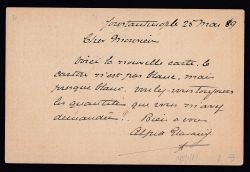 Constantinople 25 Mai 89
Cher Monsieur
Voici la nouvelle carte, le
carton n'est pas blanc, mais
presque blanc. voulez-vous toujours
les quantités que vous m'avez
demandées? Bien à vous
Alfred